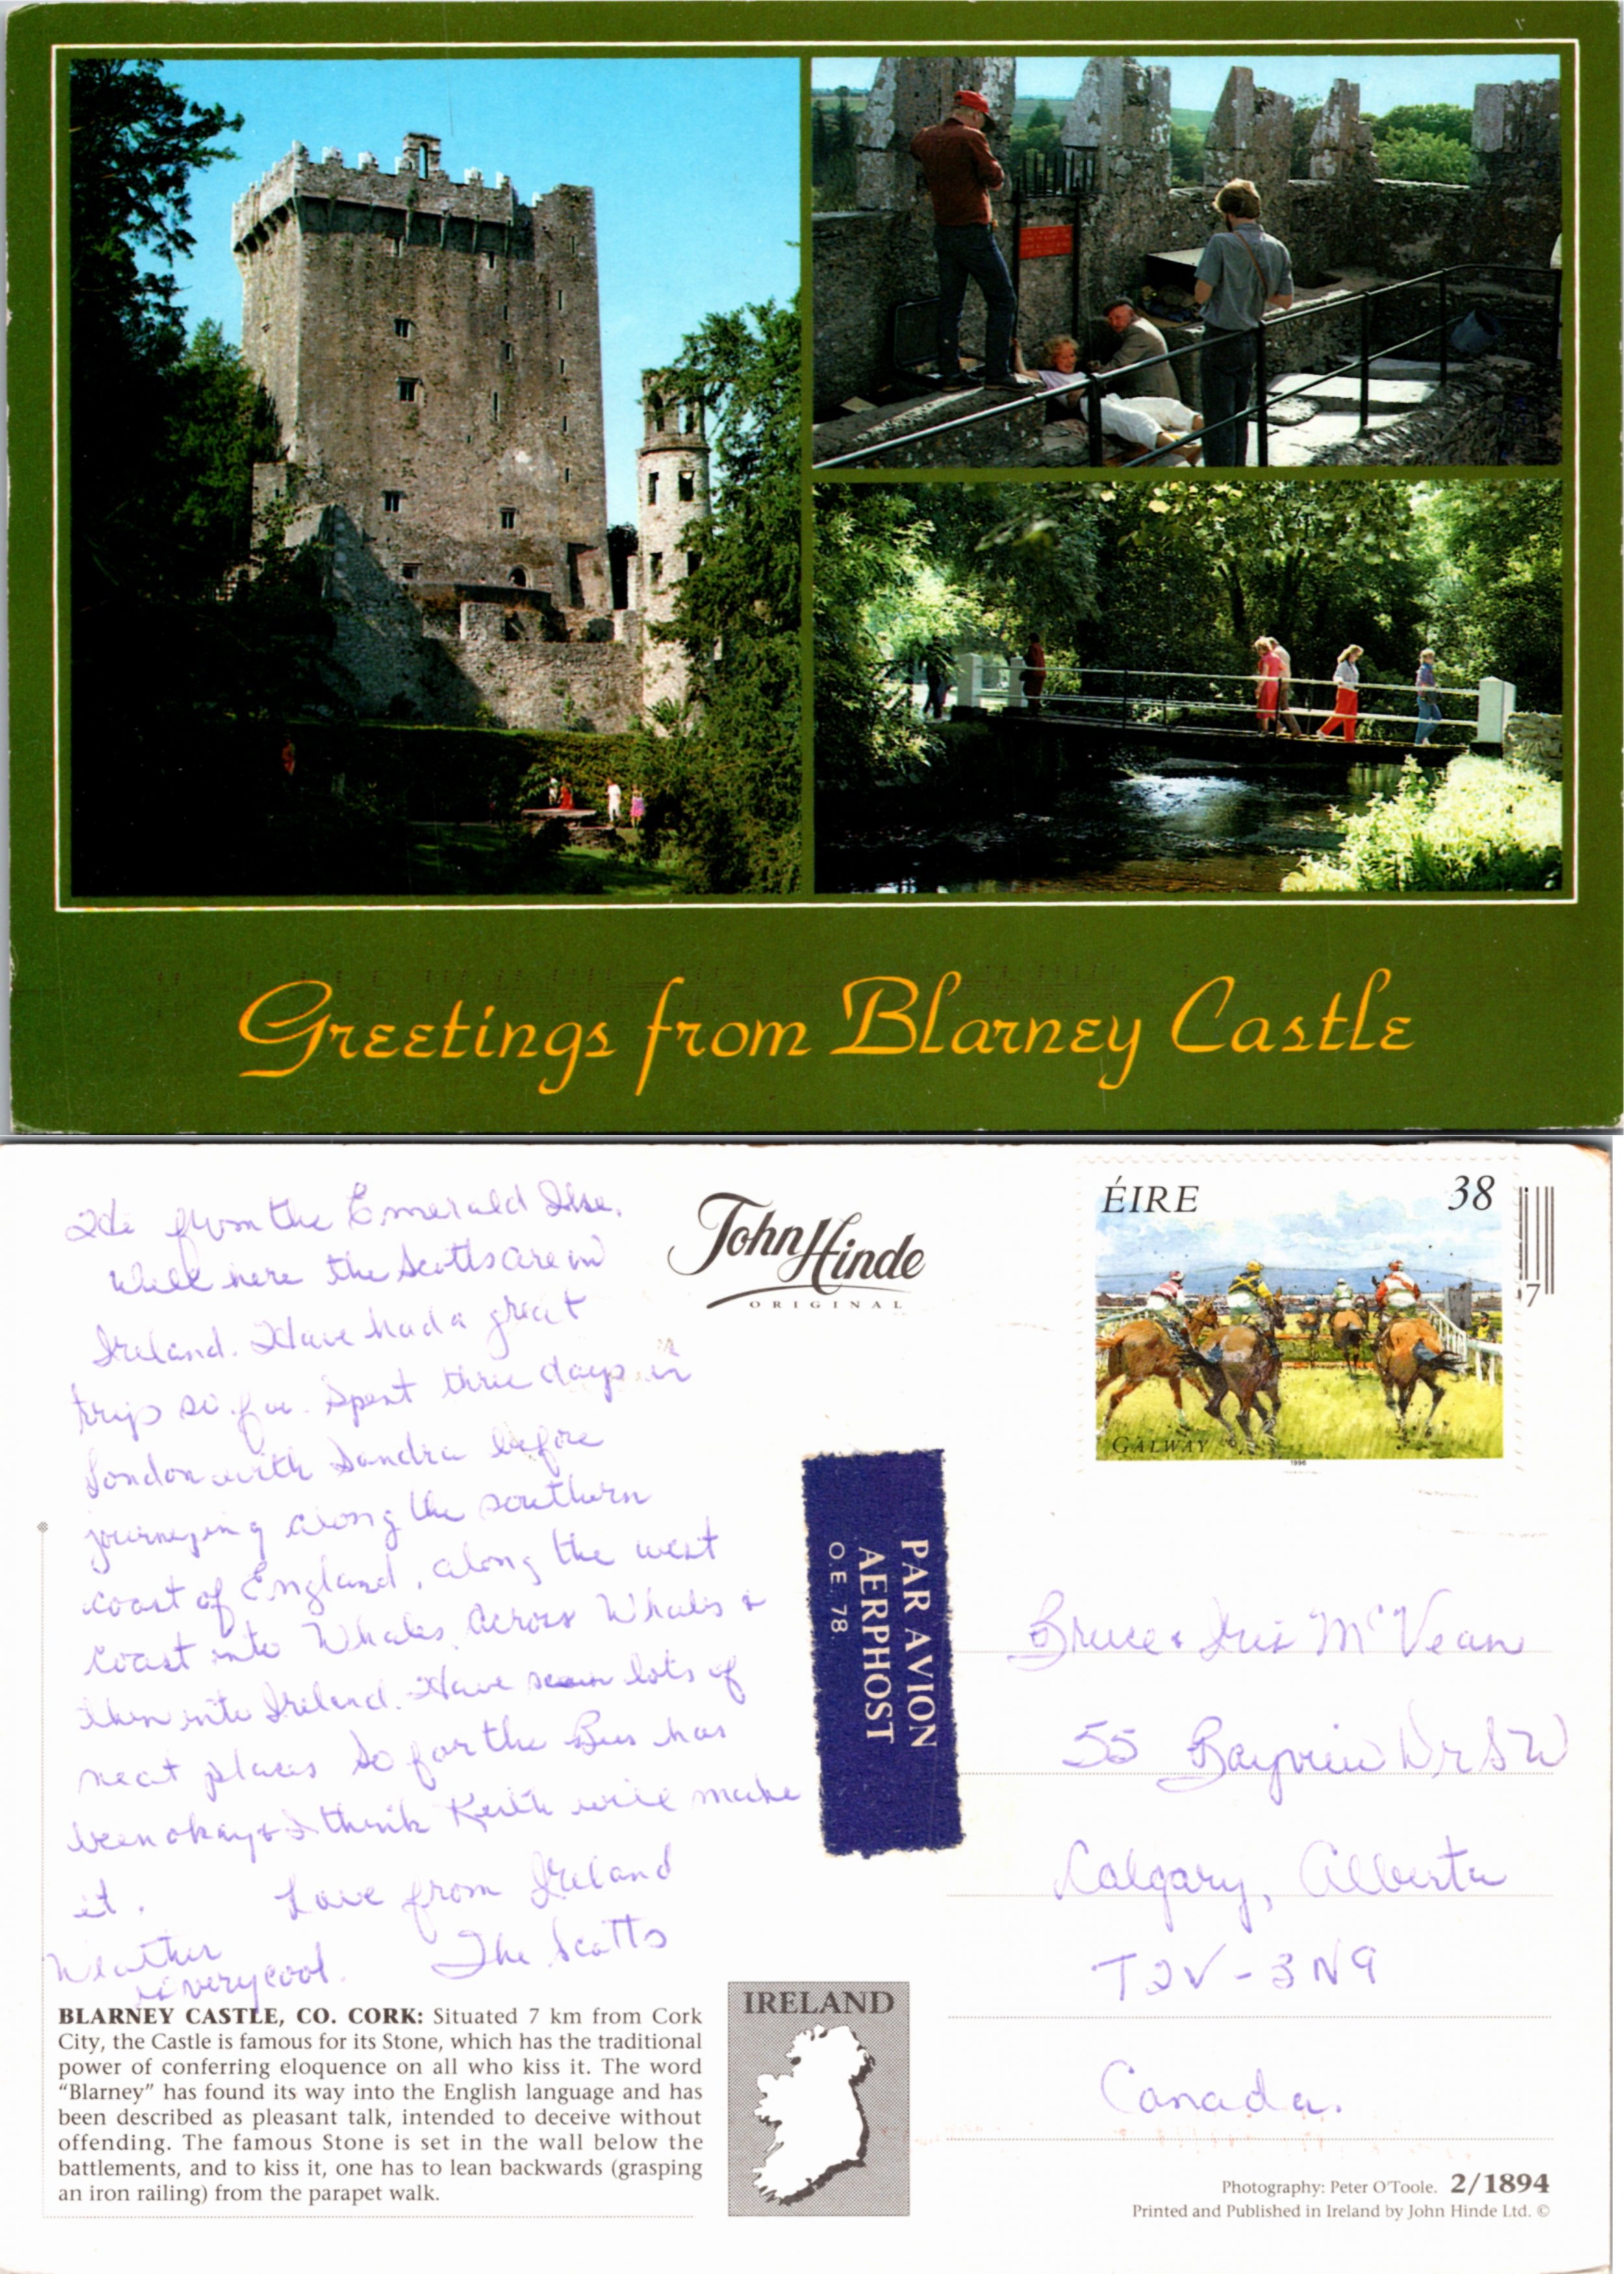 Greetings from Blarney Castle
from the Emerald Isle.
Well here the Scotts are in
Ireland. Have had a great
trip so far. Spent three days in
London with Sandra before
journeying along the southern
coast of England, along the west
coast into Whales. Across Whales &
then into Ireland. Have seen lots of
neat places. So far the Bus has
been okay & I think Keith will make
it.
Love from Ireland
The Scotts
Weather
is very cool.
BLARNEY CASTLE, CO. CORK: Situated 7 km from Cork
City, the Castle is famous for its Stone, which has the traditional
power of conferring eloquence on all who kiss it. The word
“Blarney” has found its way into the English language and has
been described as pleasant talk, intended to deceive without
offending. The famous Stone is set in the wall below the
battlements, and to kiss it, one has to lean backwards (grasping
an iron railing) from the parapet walk.
John Hinde
ORIGINAL
ÉIRE 38
GALWAY
1996
7
PAR AVION
AERPHOST
O.E. 78
Bruce & Iris McVean
55 Bayview Dr SW
Calgary, Alberta
T2V-3N9
Canada.
IRELAND
Photography: Peter O'Toole. 2/1894
Printed and Published in Ireland by John Hinde Ltd. ©